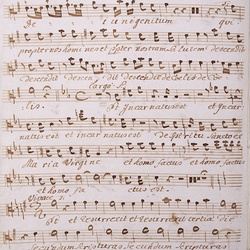 unigenitum qui
propter nos homines et propter nostram Salutem descendit
descendit descendit descendit de Coelis de Coe
Largo
lis. Et Incarnatus est et Incar
natus est et incarnatus est de Spiritu Sancto ex
Maria Virgine et homo factus et homo factus
et homo factus est.
Vivace
Et resurrexit et resurrexit tertia die
Scripturas secundum Scripturas